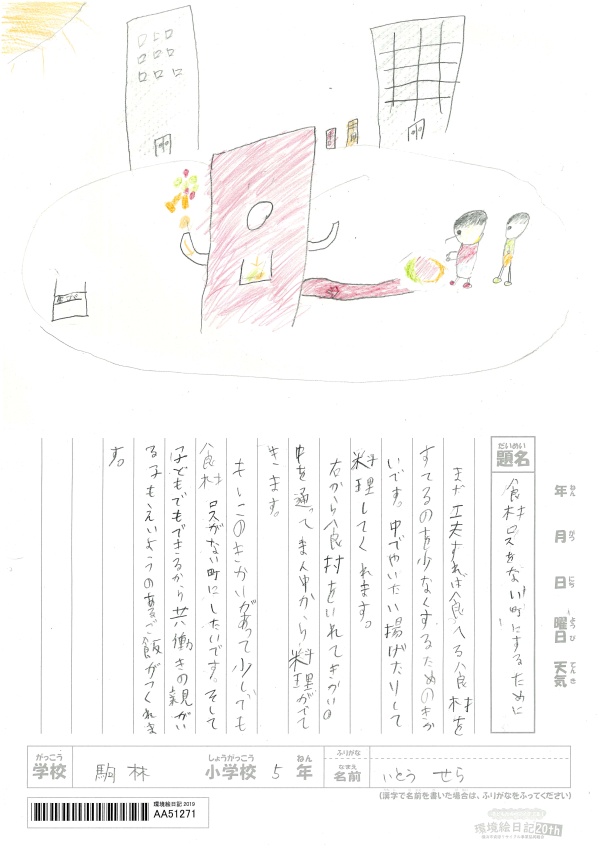 年 ねん
月 がつ
日 にち
曜日 ようび
天気 てんき
題名 だいめい
食材ロスをない町にするために
まだ工夫すれば食べる食材を
すてるのを少なくするためのきか
いです。中でやいたい揚げたりして
料理してくれます。
右から食材をいれてきかいの
中を通ってまん中から料理がでて
きます。
もしこのきかいがあって少しでも
食材ロスがない町にしたいです。そして
子どもでもできるから共働きの親がい
る子もえいようのあるご飯がつくれま
す。
がっこう しょうがっこう ねん ふりがな
学校 駒林 小学校 5 年 なまえ 名前 いとう せら
(漢字で名前を書いた場合は、ふりがなをふってください)
環境絵日記 2019
AA51271
環境絵日記 20th